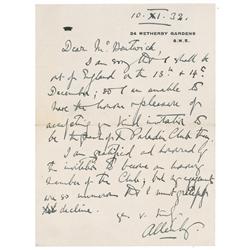 10.XI.32.
24 WETHERBY GARDENS
S.W.5.
Dear Mr Bentwich,
I am sorry that I shall be
out of England on the 13th & 14th
December; so I am unable to
have the honour & pleasure of
accepting your kind invitation to
be the guest of the Paladin Club then.
I am gratified and honoured by
the invitation to become an honorary
member of the Club; but my engagements
are so numerous that I must
decline.
Yours v. truly
Allenby